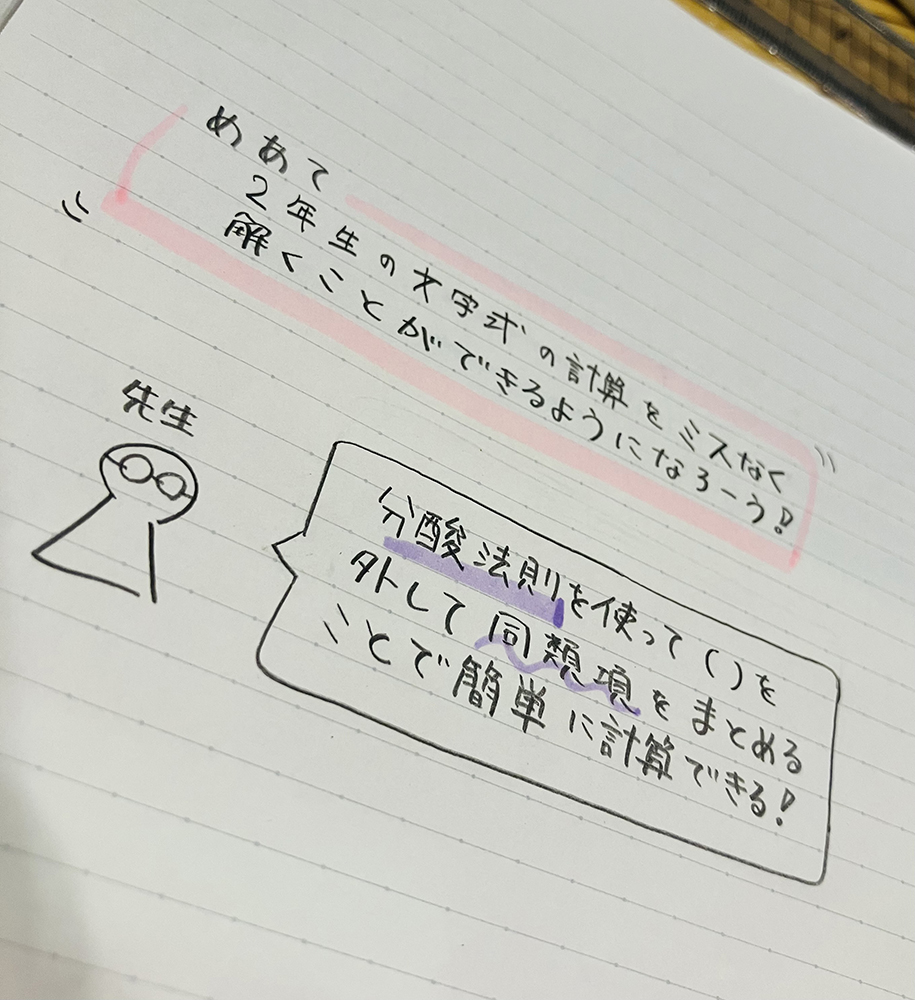 めあて
2年生の文字式の計算をミスなく
解くことができるようになろーう!
先生
分酸法則を使って()を
外して同類項をまとめる
ことで簡単に計算できる!